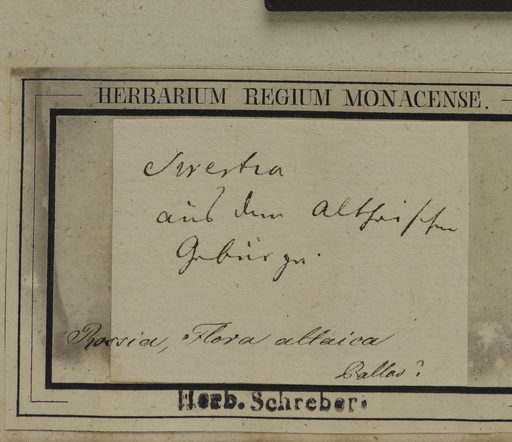 HERBARIUM REGIUM MONACENSE.
Swertia
aus dem Althaischen
Gebürge.
Rossia, Flora altaica
Pallas?
Herb. Schreber: